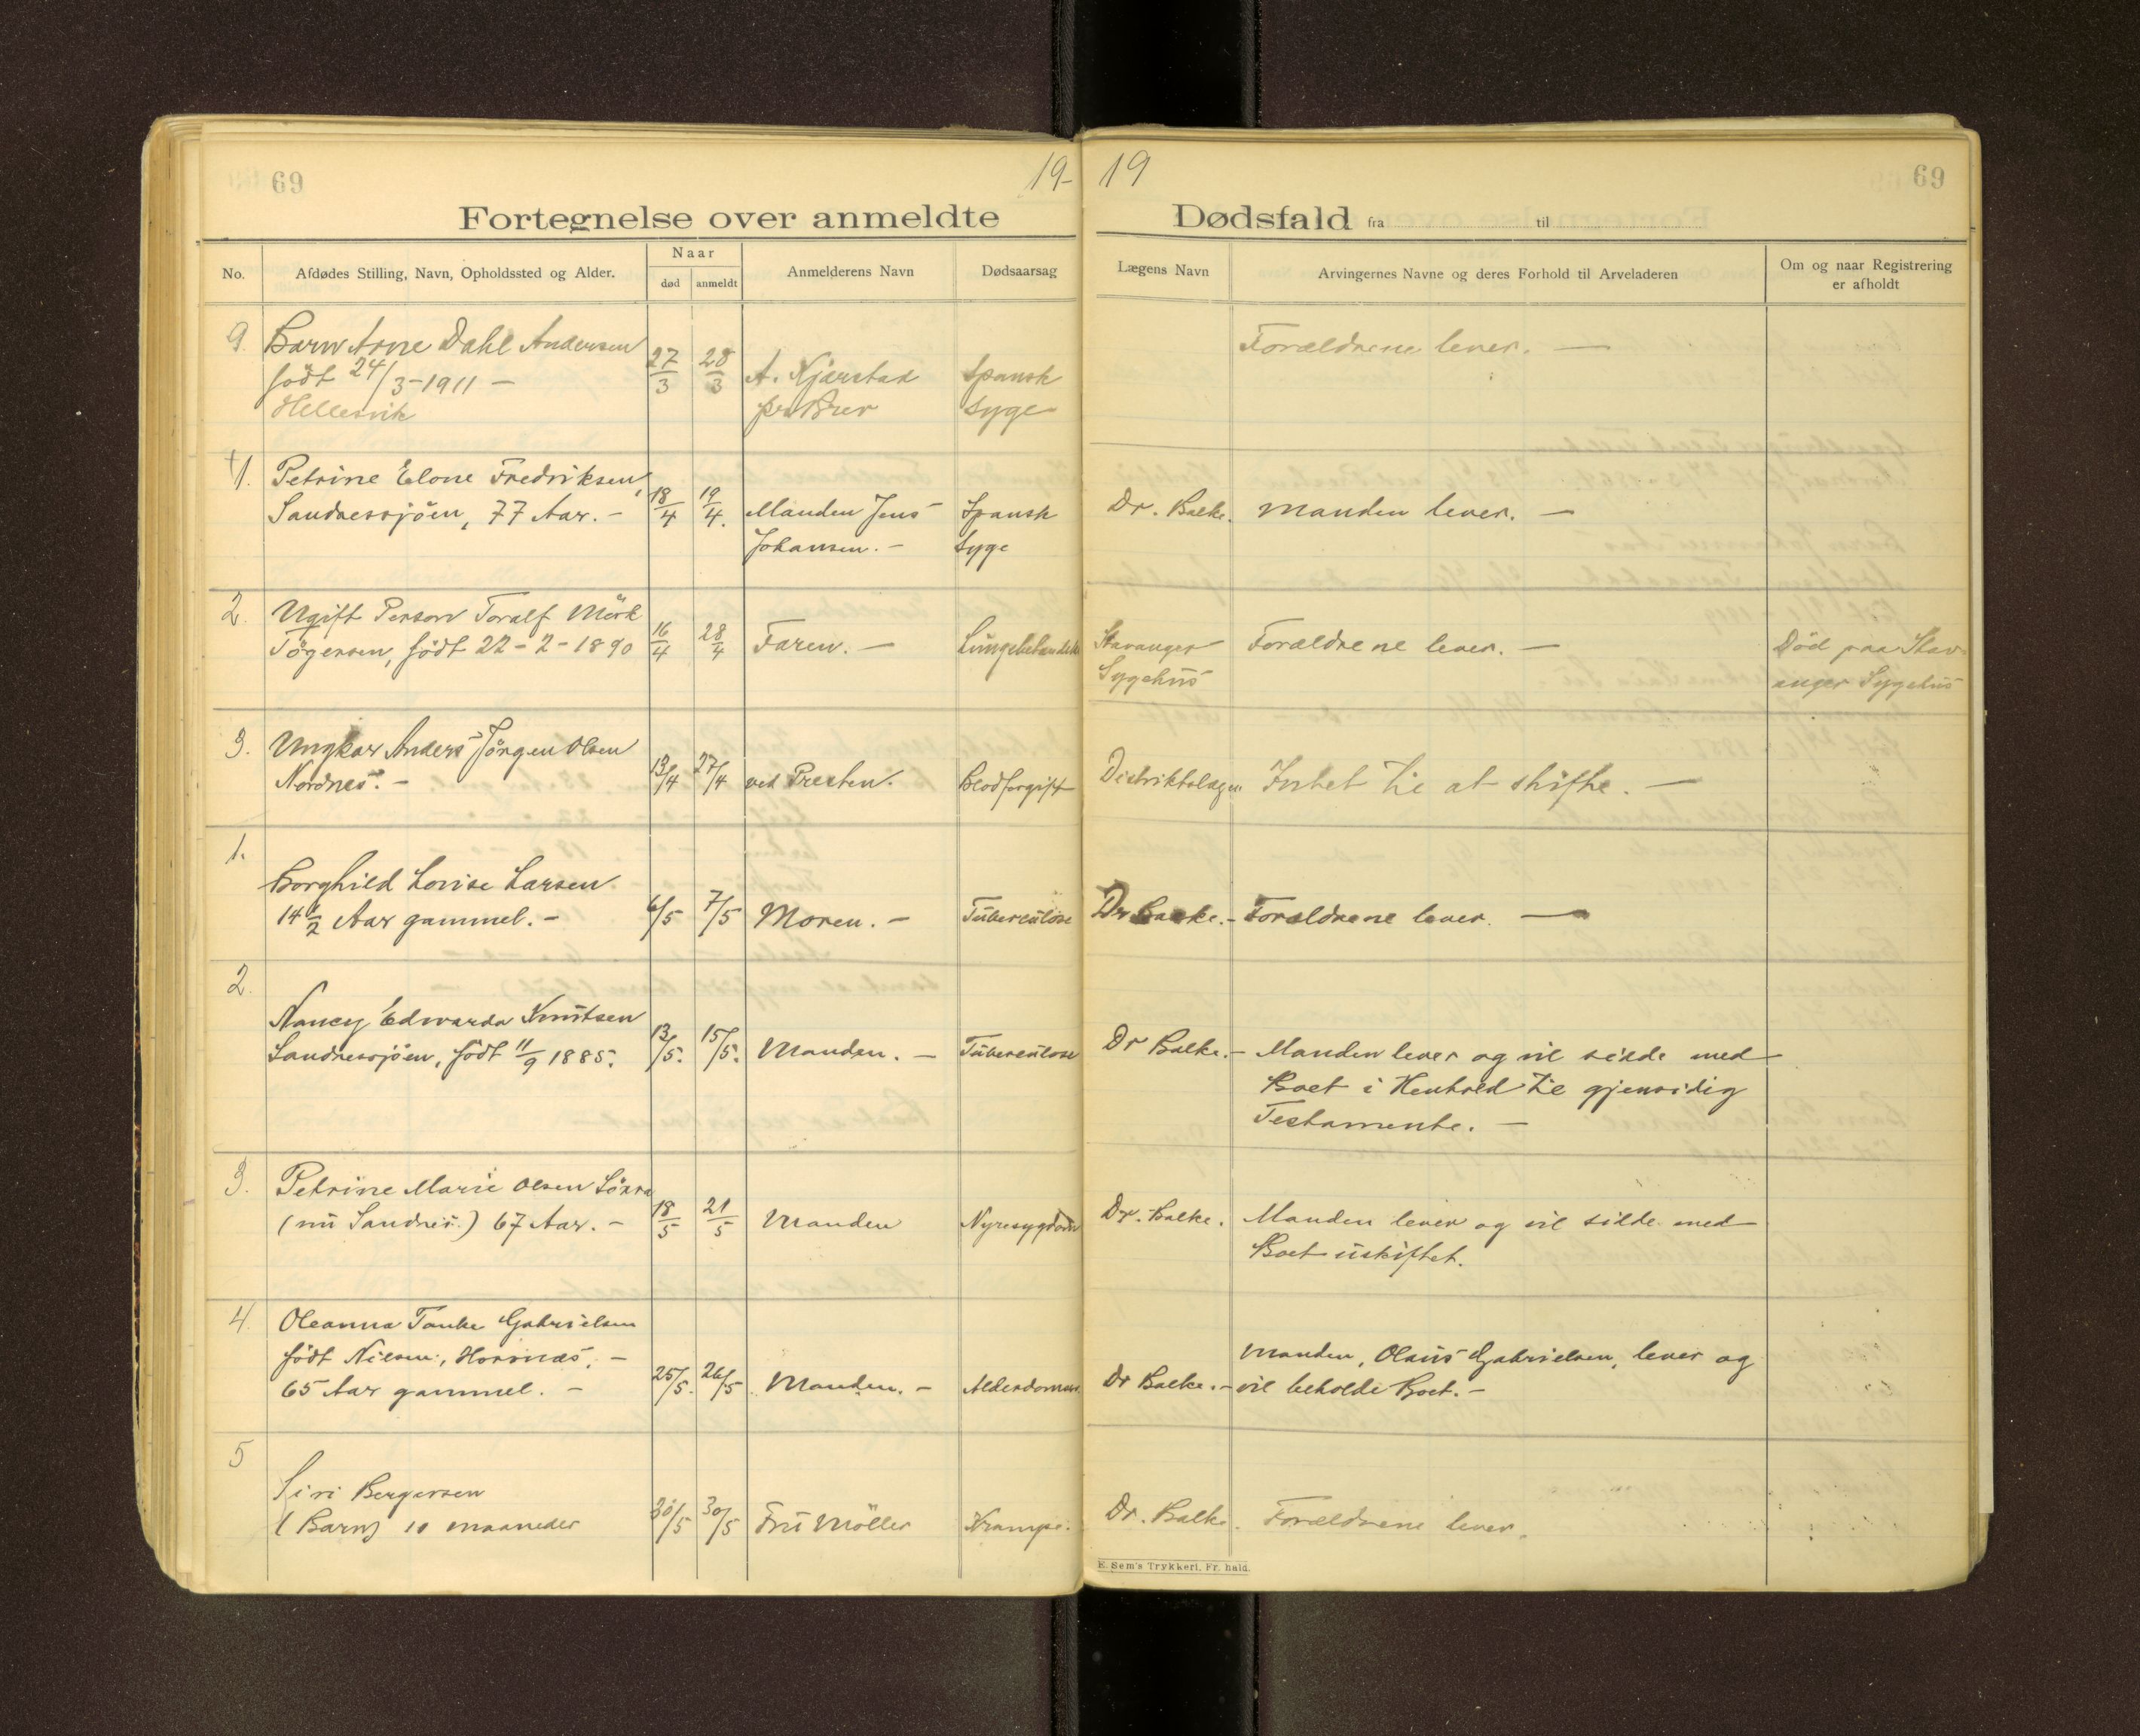 69
19-
19
69
Fortegnelse over anmeldte
Dødsfald fra til
No.
Afdødes Stilling, Navn, Opholdssted og Alder.
Naar
død
anmeldt
Anmelderens Navn
Dødsaarsag
Lægens Navn
Arvingernes Navne og deres Forhold til Arveladeren
Om og naar Registrering
er afholdt
9. Barn Arne Dahl Andersen
født 24/3-1911 -
Hellesvik
27/3 28/3
A. Kjærstad
pr Brev
Spansk
Syge
Forældrene lever. -
1. Petrine Elone Fredriksen,
Sandnessjöen, 77 Aar. -
18/4 19/4.
Manden Jens
Johansen. -
Spansk
Syge
Dr. Balke.
Manden lever. -
2. Ugift Person Toralf Mörk
Tögersen, födt 22-2-1890
16/4 28/4
Faren. -
Stavanger
Sygehus
Forældrene lever. -
Död paa Stav
anger Sygehus
3. Ungkar Anders Jörgen Olsen
Nordnes. -
13/4 27/4
ved Presten.
Blodforgift
Distriktslægen
Intet til at skifte. -
1.
Borghild Lovise Larsen
14 1/2 Aar gammel. -
6/5 7/5
Moren. -
Tuberculose
Dr Balke. -
Forældrene lever. -
2.
Nancy Edvarda Knutsen
Sandnessjöen, födt 11/9 1885.
13/5. 15/5.
Manden. -
Tuberculose
Dr Balke. -
Manden lever og vil sidde med
Boet i Henhold til gjensidig
Testamente. -
3. Petrine Marie Olsen Sörra
(nu Sandnes.) 67 Aar. -
18/5 21/5
Manden
Nyresygdom
Dr. Balke.
Manden lever og vil sidde med
Boet uskiftet.
4. Oleanna Tanke Gabrielsen
födt Nilsen, Hornnæs. -
65 Aar gammel. -
25/5. 26/5
Manden. -
Alderdoms
Dr Balke. -
Manden, Olaus Gabrielsen, lever og
vil beholde Boet. -
5
Siri Bergersen
(Barn) 10 maaneder
30/5 30/5
Fru Möller
Krampe.
Dr. Balke.
Forældrene lever.
E. Sem's Trykkeri, Fr. hald.